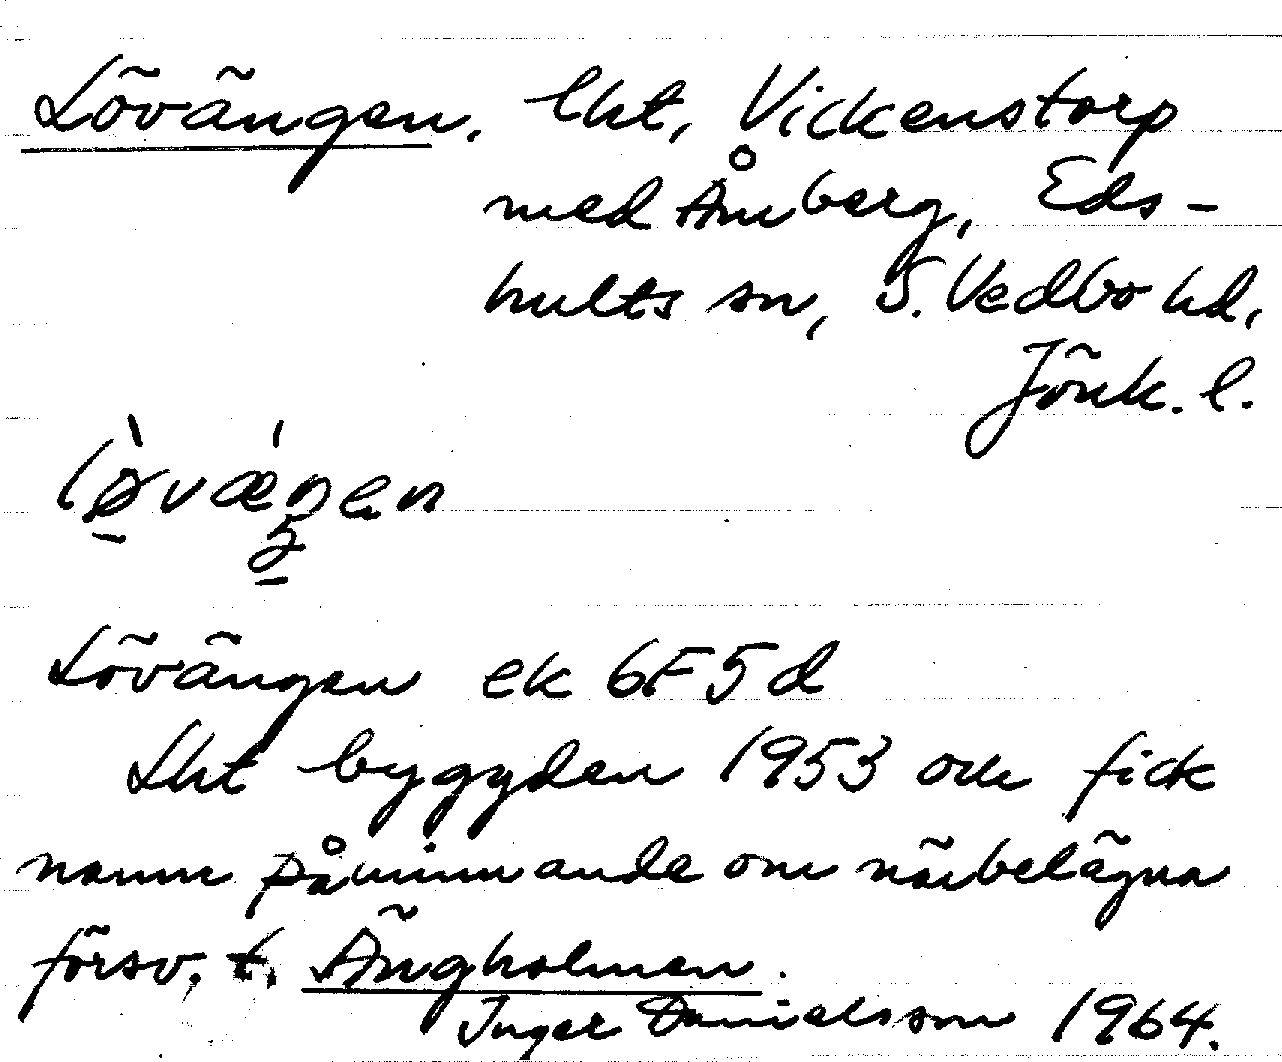 Lövängen. lht, Vickenstorp
med Åmberg, Eds-
hults sn, S. Vedbo hd,
Jönk. l.
Lövängen ek 6F5d
Lht byggden 1953 och fick
namn påminnande om närbelägna
försv. t. Ängholmen.
Inger Danielsson 1964.